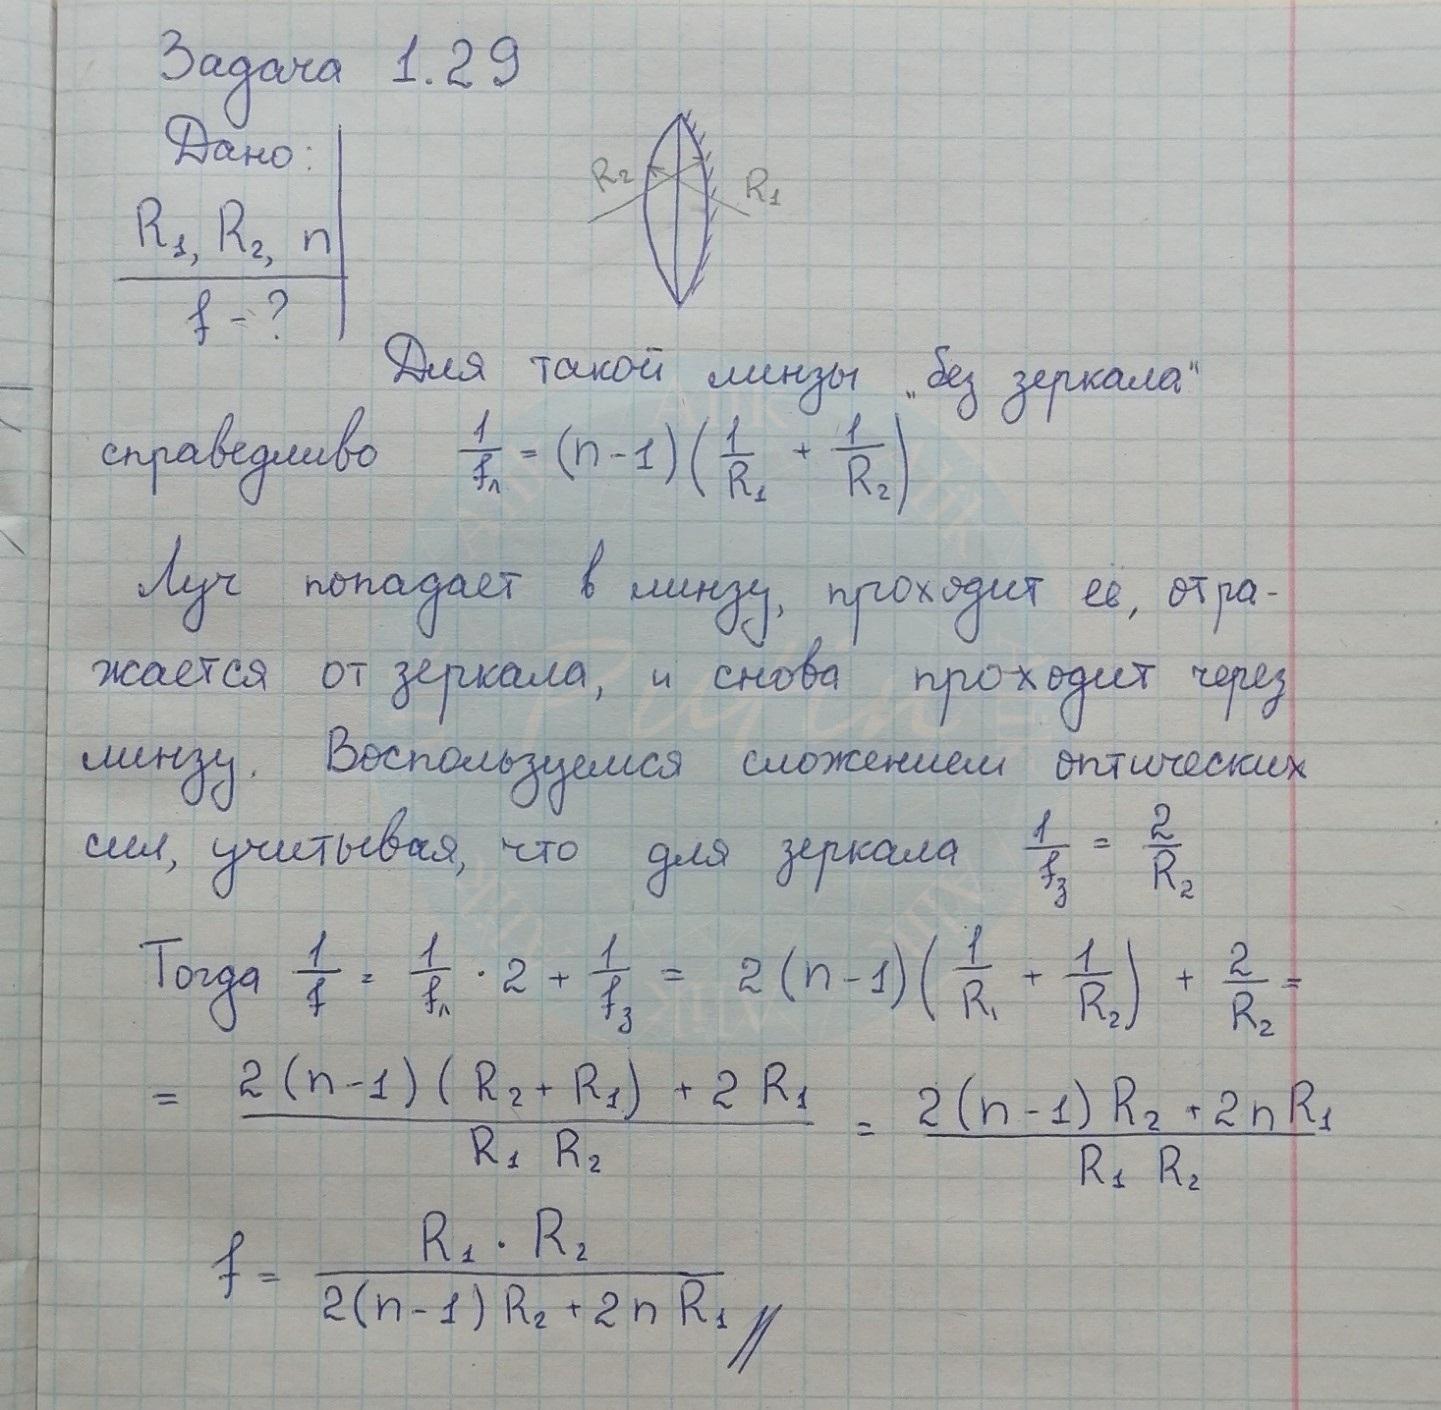 Задача 1.29
Дано:
R₁, R₂, n
f - ?
R₂ R₁
Для такой линзы „без зеркала"
справедливо 1/fл = (n-1)(1/R₁ + 1/R₂)
Луч попадает в линзу, проходит её, отра-
жается от зеркала, и снова проходит через
линзу. Воспользуемся сложением оптических
сил, учитывая, что для зеркала 1/fз = 2/R₂
Тогда 1/f = 1/fл · 2 + 1/fз = 2(n-1)(1/R₁ + 1/R₂) + 2/R₂ =
= (2(n-1)(R₂ + R₁) + 2R₁)/(R₁ R₂) = (2(n-1)R₂ + 2nR₁)/(R₁ R₂)
f = (R₁ · R₂)/(2(n-1)R₂ + 2nR₁)